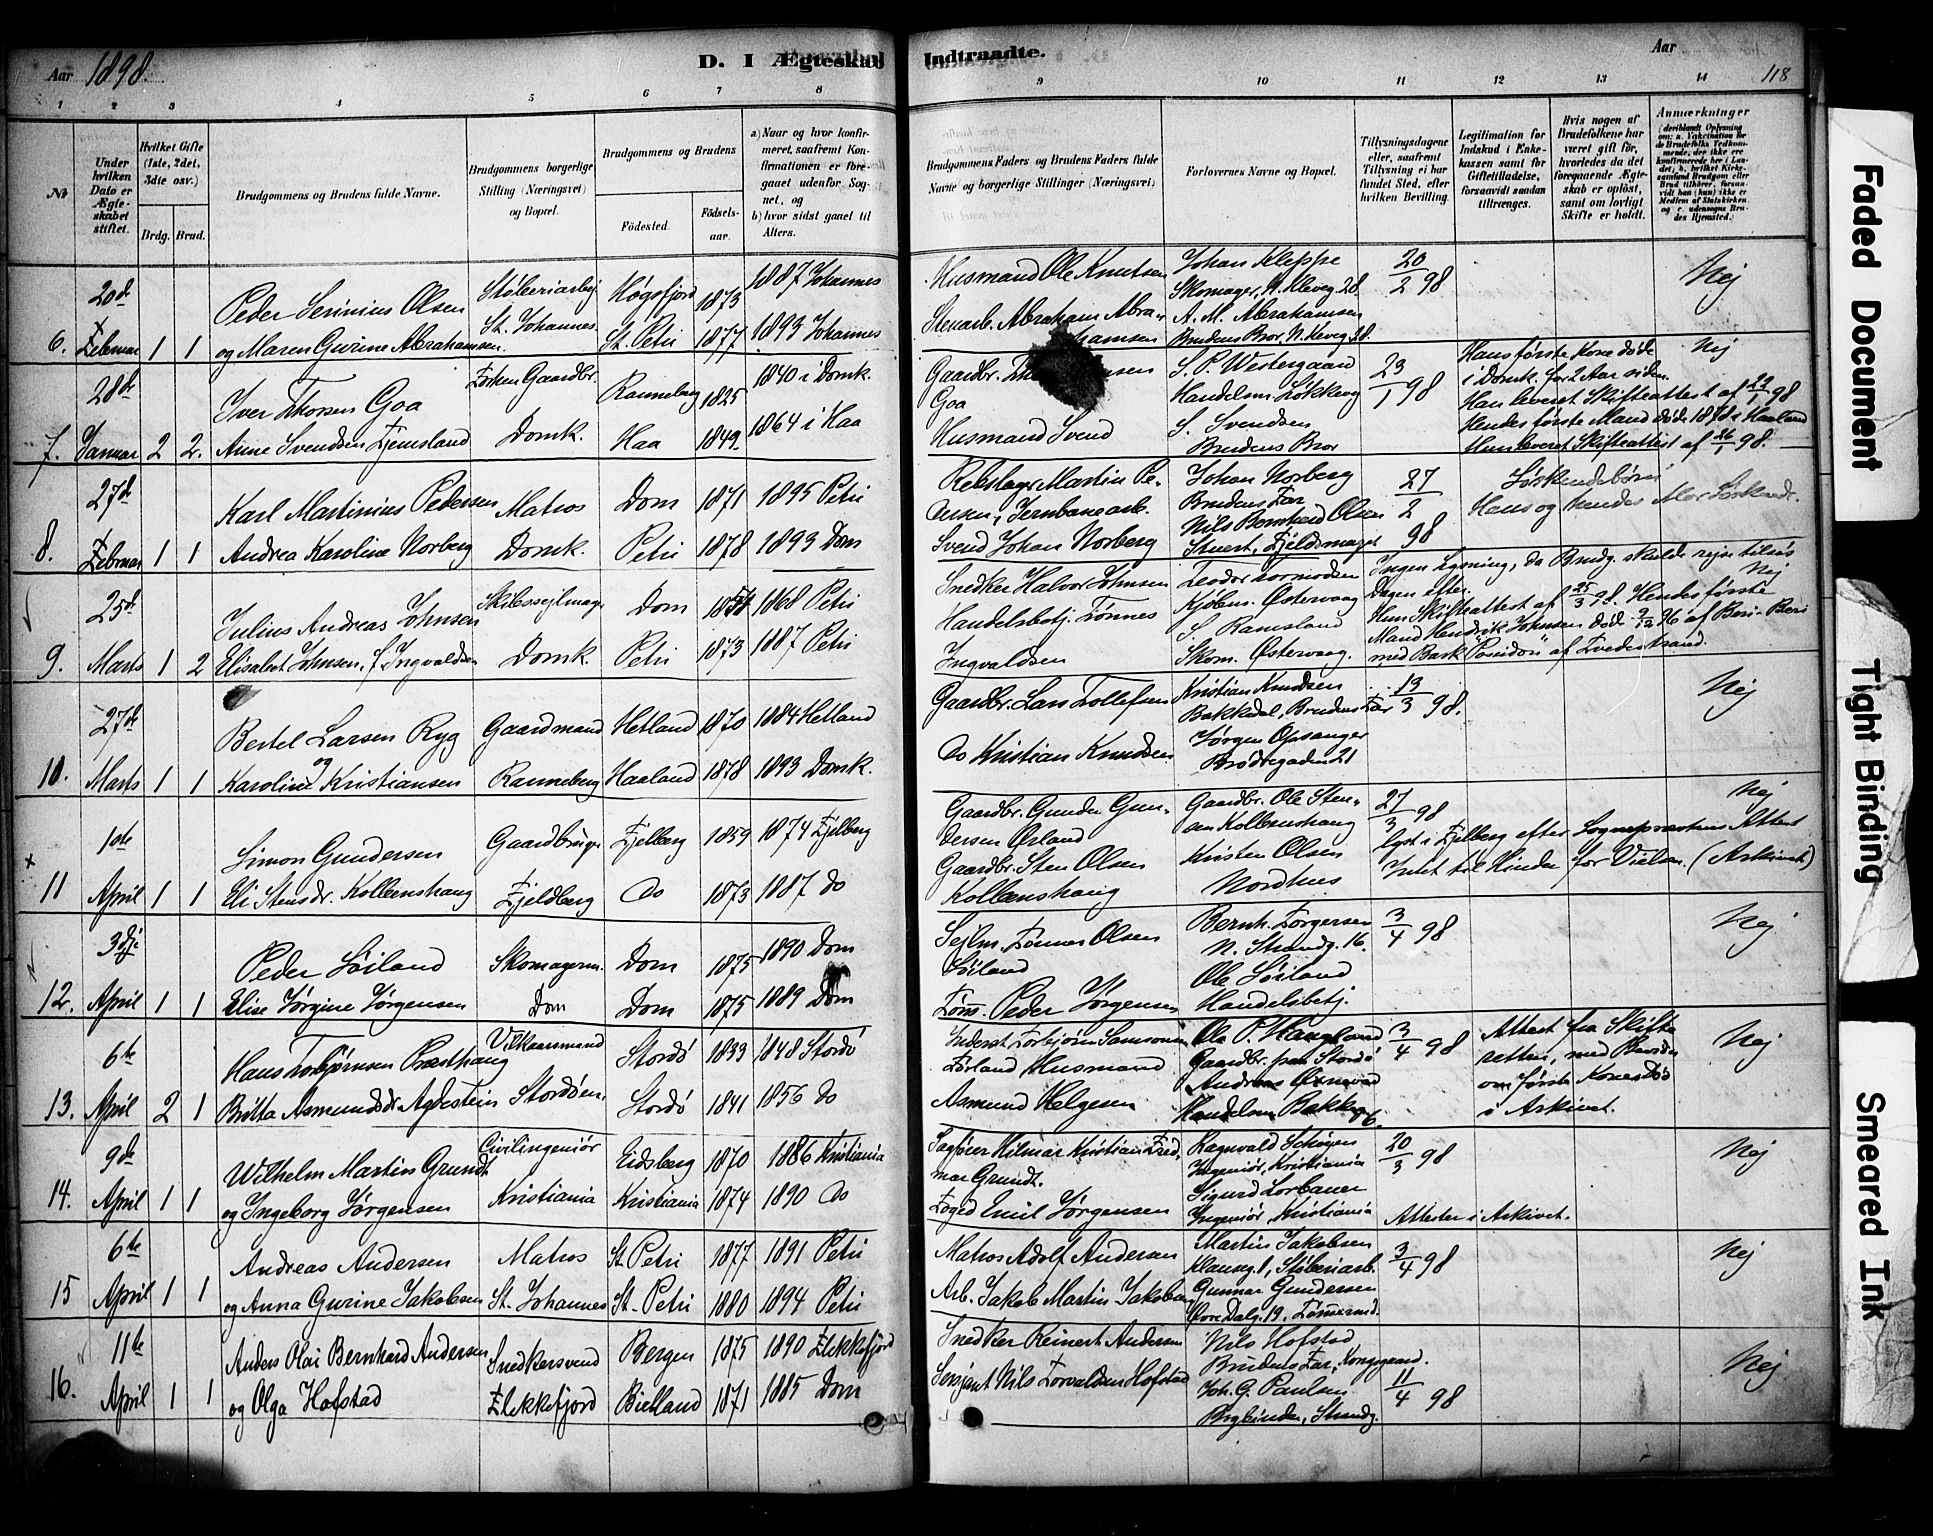 Aar 1898.
D. I Ægteskab
Indtraadte.
Aar
118
1 2 3 4 5 6 7 8
9 10 11 12 13 14
No
Under hvilken Dato er Ægteskabet stiftet.
Hvilket Gifte (1ste, 2det, 3die osv.)
Brdg. Brud.
Brudgommens og Brudens fulde Navne.
Brudgommens borgerlige Stilling (Næringsvei) og Bopæl.
Brudgommens og Brudens
Födested.
Födselsaar.
a) Naar og hvor konfirmeret, saafremt Konfirmationen er foregaaet udenfor Sognet, og b) hvor sidst gaaet til Alters.
Brudgommens Faders og Brudens Faders fulde Navne og borgerlige Stillinger (Næringsvei)
Forlovernes Navne og Bopæl.
Tillysningsdagene eller, saafremt Tillysning ei har fundet Sted, efter hvilken Bevilling.
Legitimation for Indskud i Enkekassen samt for Giftetilladelse, forsaavidt saadan tiltrænges.
Hvis nogen af Brudefolkene har været gift för, hvorledes da det foregaaende Ægteskab er oplöst, samt om lovligt Skifte er holdt.
Anmærkninger
6. 20de Februar 1 1
Peder Serinius Olsen
og Maren Gurine Abrahamsen.
Støberiarbej
St. Johannes
Høgsfjord 1873 1887 Johannes
St. Petri 1877 1893 Johannes
Husmand Ole Knutsen
Stenarb. Abraham Abra-
hamsen
Johan Kleppe
Skomager, N. Kleveg. 28.
A. M. Abrahamsen
Brudens Bror N. Kleveg. 28.
20/2 98
Nej
7. 28de Januar 2 2.
Iver Thorsen Goa
Anne Svendsen Fjemsland
Forhen Gaardbr.
Domk.
Ranneberg 1825 1840 i Domk.
Haa 1849 1864 i Haa
Gaardbr.
Goa
Husmand Svend
S. P. Westergaard
Handelsm. Løkkeveg
S. Svendsen
Brudens Bror
23/1 98
Hans første Kone døde
i Domk. for 2 Aar siden.
Han leveret Skifteattest af 22/1 98
Hendes første Mand døde 1878 i Haaland
Hun leveret Skifteattest af 26/1 98.
Nej
8. 27de Februar 1 1
Karl Martinius Pedersen
Andrea Karoline Norberg
Matros
Domk.
Dom 1871 1895 Petri
Petri 1878 1893 Dom
Rebslager Martin Pe-
dersen, Jernbanearb.
Svend Johan Norberg
Johan Norberg
Brudens Far
Nils Bernhard Olsen
Stuert, Fjeldsmaget
27/2 98
Søskendebørn
Hans og hendes Mor Søskende.
9. 25de Marts 1 2
Julius Andreas Johnsen
Elisabet Johnsen, f. Ingvaldsen
Skibssejlmager
Domk.
Dom 1854 1868 Petri
Petri 1873 1887 Petri
Snedker Halvor Johnsen
Handelsbetj. Tønnes
Ingvaldsen
Teodor Tormodsen
Kjøbm. Østervaag
S. Ramsland
Skom. Østervaag.
Ingen Lysning, da Brudg. skulde rejse tilsøs
Dagen efter. Nej
Hun Skifteattest af 25/3 98. Hendes første
Mand Hendrik Johnsen døde 9/12 96 af Beri-Beri
med Bark "Poseidon" af Tvedestrand.
10. 27de Marts 1 1
Bertel Larsen Ryg
og
Karoline Kristiansen
Gaardmand
Ranneberg
Hetland 1870 1884 Hetland
Haaland 1878 1893 Domk.
Gaardbr. Lars Tollefsen
Do Kristian Knudsen
Kristian Knudsen
Bakkedal, Brudens Far
Jørgen Opsanger
Brødregaden 21
13/3 98.
Nej
11 1ste April 1 1
Simon Gundersen
Eli Stensdr. Kolbenshaug
Gaardbruger
Fjeldberg
Fjelberg 1859 1874 Fjelberg
Do 1873 1887 do
Gaardbr. Gunder Gun-
dersen Ørland
Gaardbr. Sten Olsen
Kolbenshaug
Gaardbr. Ole Sten-
sen Kolbenshaug
Kristen Olsen
Nordhus
27/3 98
lyst i Fjelberg efter Sognepræstens Attest
Intet til Hinder for Vielsen. (Arkivet)
Nej
12. 3dje April 1 1
Peder Söiland
Elise Jørgine Jørgensen
Skomagerm.
Dom
Dom 1875 1890 Dom
Dom 1875 1889 Dom
Sejlm. Tønnes Olsen
Söiland
Tøm. Peder Jørgensen
Bernh. Torgersen
N. Strandg. 16.
Ole Söiland
Handelsbetj.
3/4 98
Nej
13. 6te April 2 1
Hans Torbjørnsen Præsthaug
Britta Asmundsdr. Agdestein
Vilkaarsmand
Stordøen.
Stordö 1833 1848 Stordö
Stordö 1841 1856 do
Inderst Torbjørn Samsonsen
Husmand
Asmund Helgesen
Ole P. Haugland
Gaardbr. fra Stordö
Andreas
Handelsm Bakkeg. 6.
3/4 98
Attest fra Skifte
retten, med Bevidn
om første Konesdöd
i Arkivet.
Nej
14. 9de April 1 1
Wilhelm Martin Grundt
og Ingeborg Jørgensen
Civilingeniör
Kristiania
Eidsberg 1870 1886 Kristiania
Kristiania 1874 1890 Do
Sagfører Hilmar Kristian Fred-
mar Grundt.
Foged Emil Jørgensen
Ragnvald Schøyen
Ingeniör, Kristiania
Sigurd Lorbauer
Ingeniör, Kristiania
20/3 98
Attester i Arkivet.
Nej
15 6te April 1 1
Andreas Andersen
og Anna Gurine Jakobsen
Matros
St. Johannes
St. Petri 1877 1891 Petri
St. Petri 1880 1894 Petri
Matros Adolf Andersen
Arb. Jakob Martin Jakobsen
Martin Jakobsen
Klauseg. 1, Støberiarb.
Gunnar Gundersen
Øvre Dalg. 19. Tømmermd.
3/4 98
Nej
16. 11te April 1 1
Anders Olai Bernhard Andersen
og Olga Hofstad
Snedkersvend
Flekkefjord
Bergen 1875 1890 Flekkefjord
Birkland 1871 1885 Dom
Snedker Reinert Andersen
Sersjant Nils Torvaldsen Hofstad
Nils Hofstad
Brudens Far, Kongsgaard.
Joh. G. Paulsen
Bogbinder, Strandg.
11/4 98
Nej
Faded Document
Tight Binding
Smeared Ink